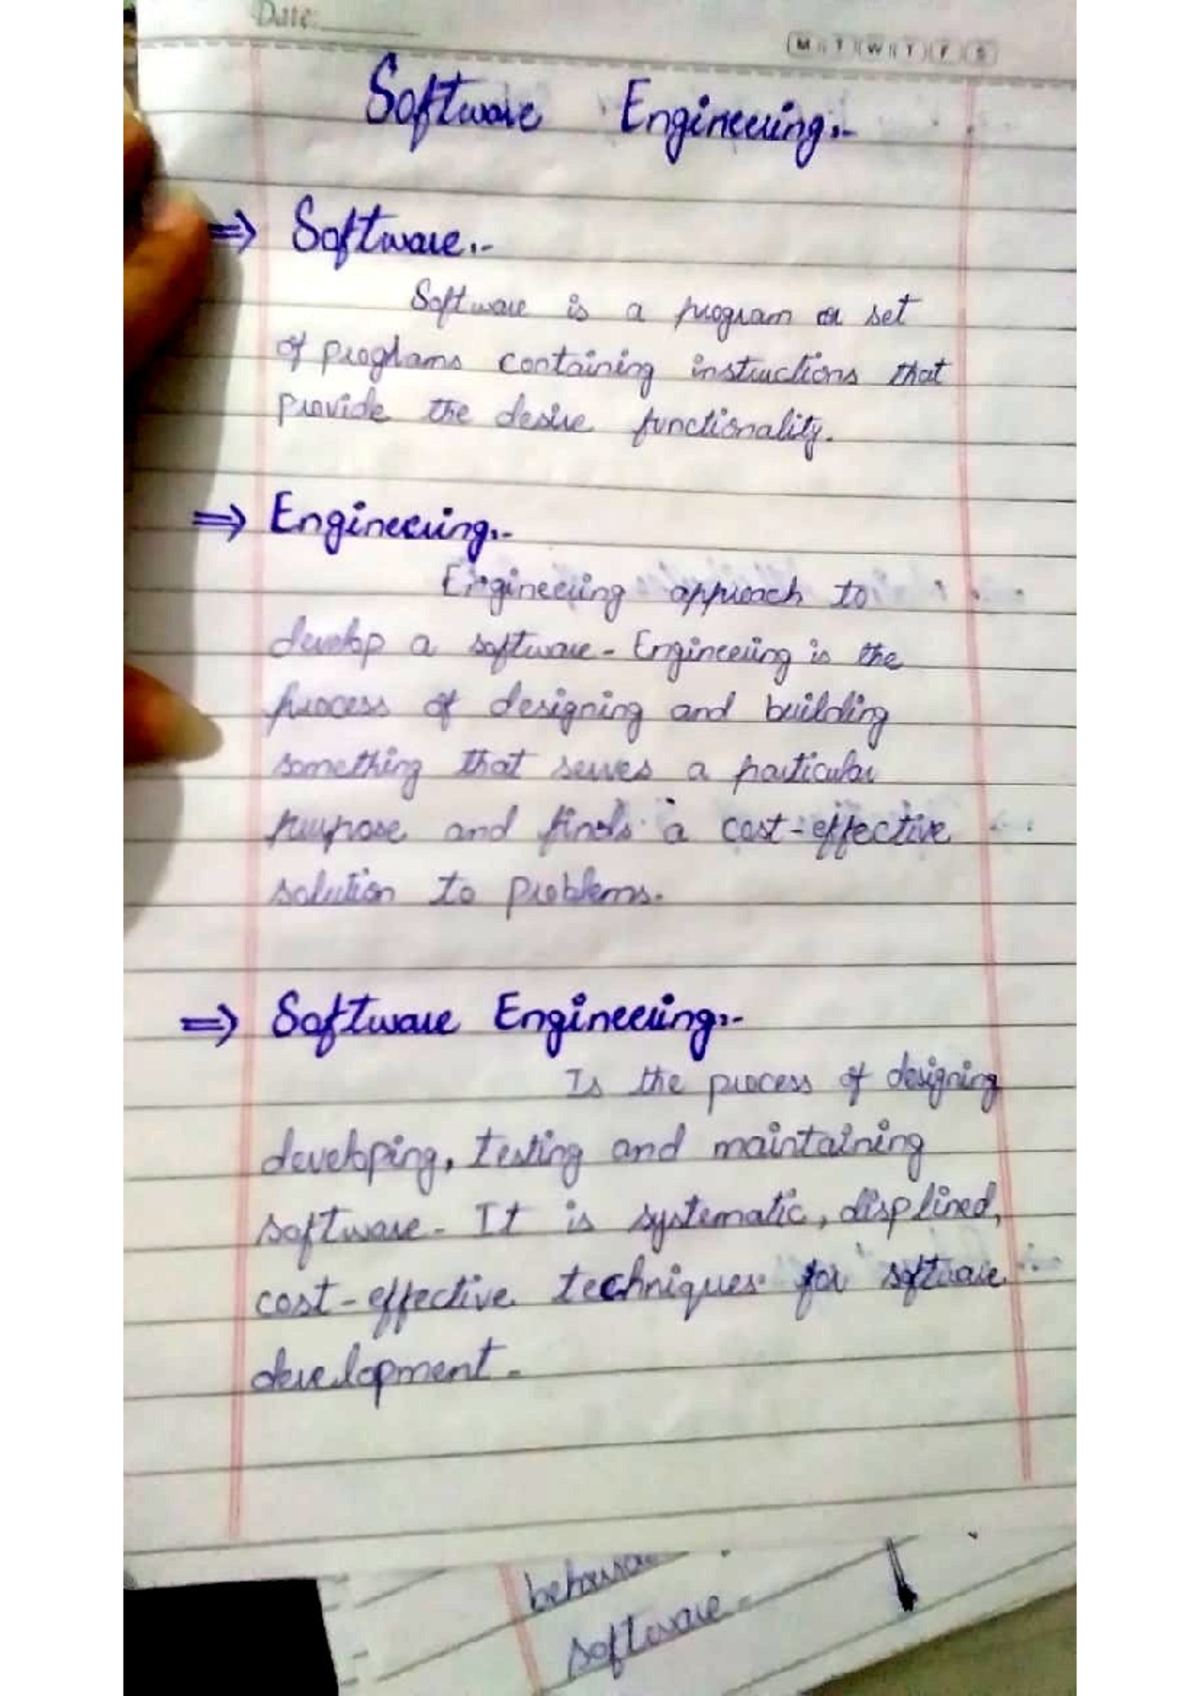 Date:
M T W T F S
Software Engineering:-
⇒ Software:-
Software is a program or set
of programs containing instructions that
provide the desire functionality.
⇒ Engineering:-
Engineering approach to
develop a software. Engineering is the
process of designing and building
something that serves a particular
purpose and finds a cost-effective
solution to problems.
⇒ Software Engineering:-
Is the process of designing
developing, testing and maintaining
software. It is systematic, displined,
cost-effective techniques for software
development.
software.